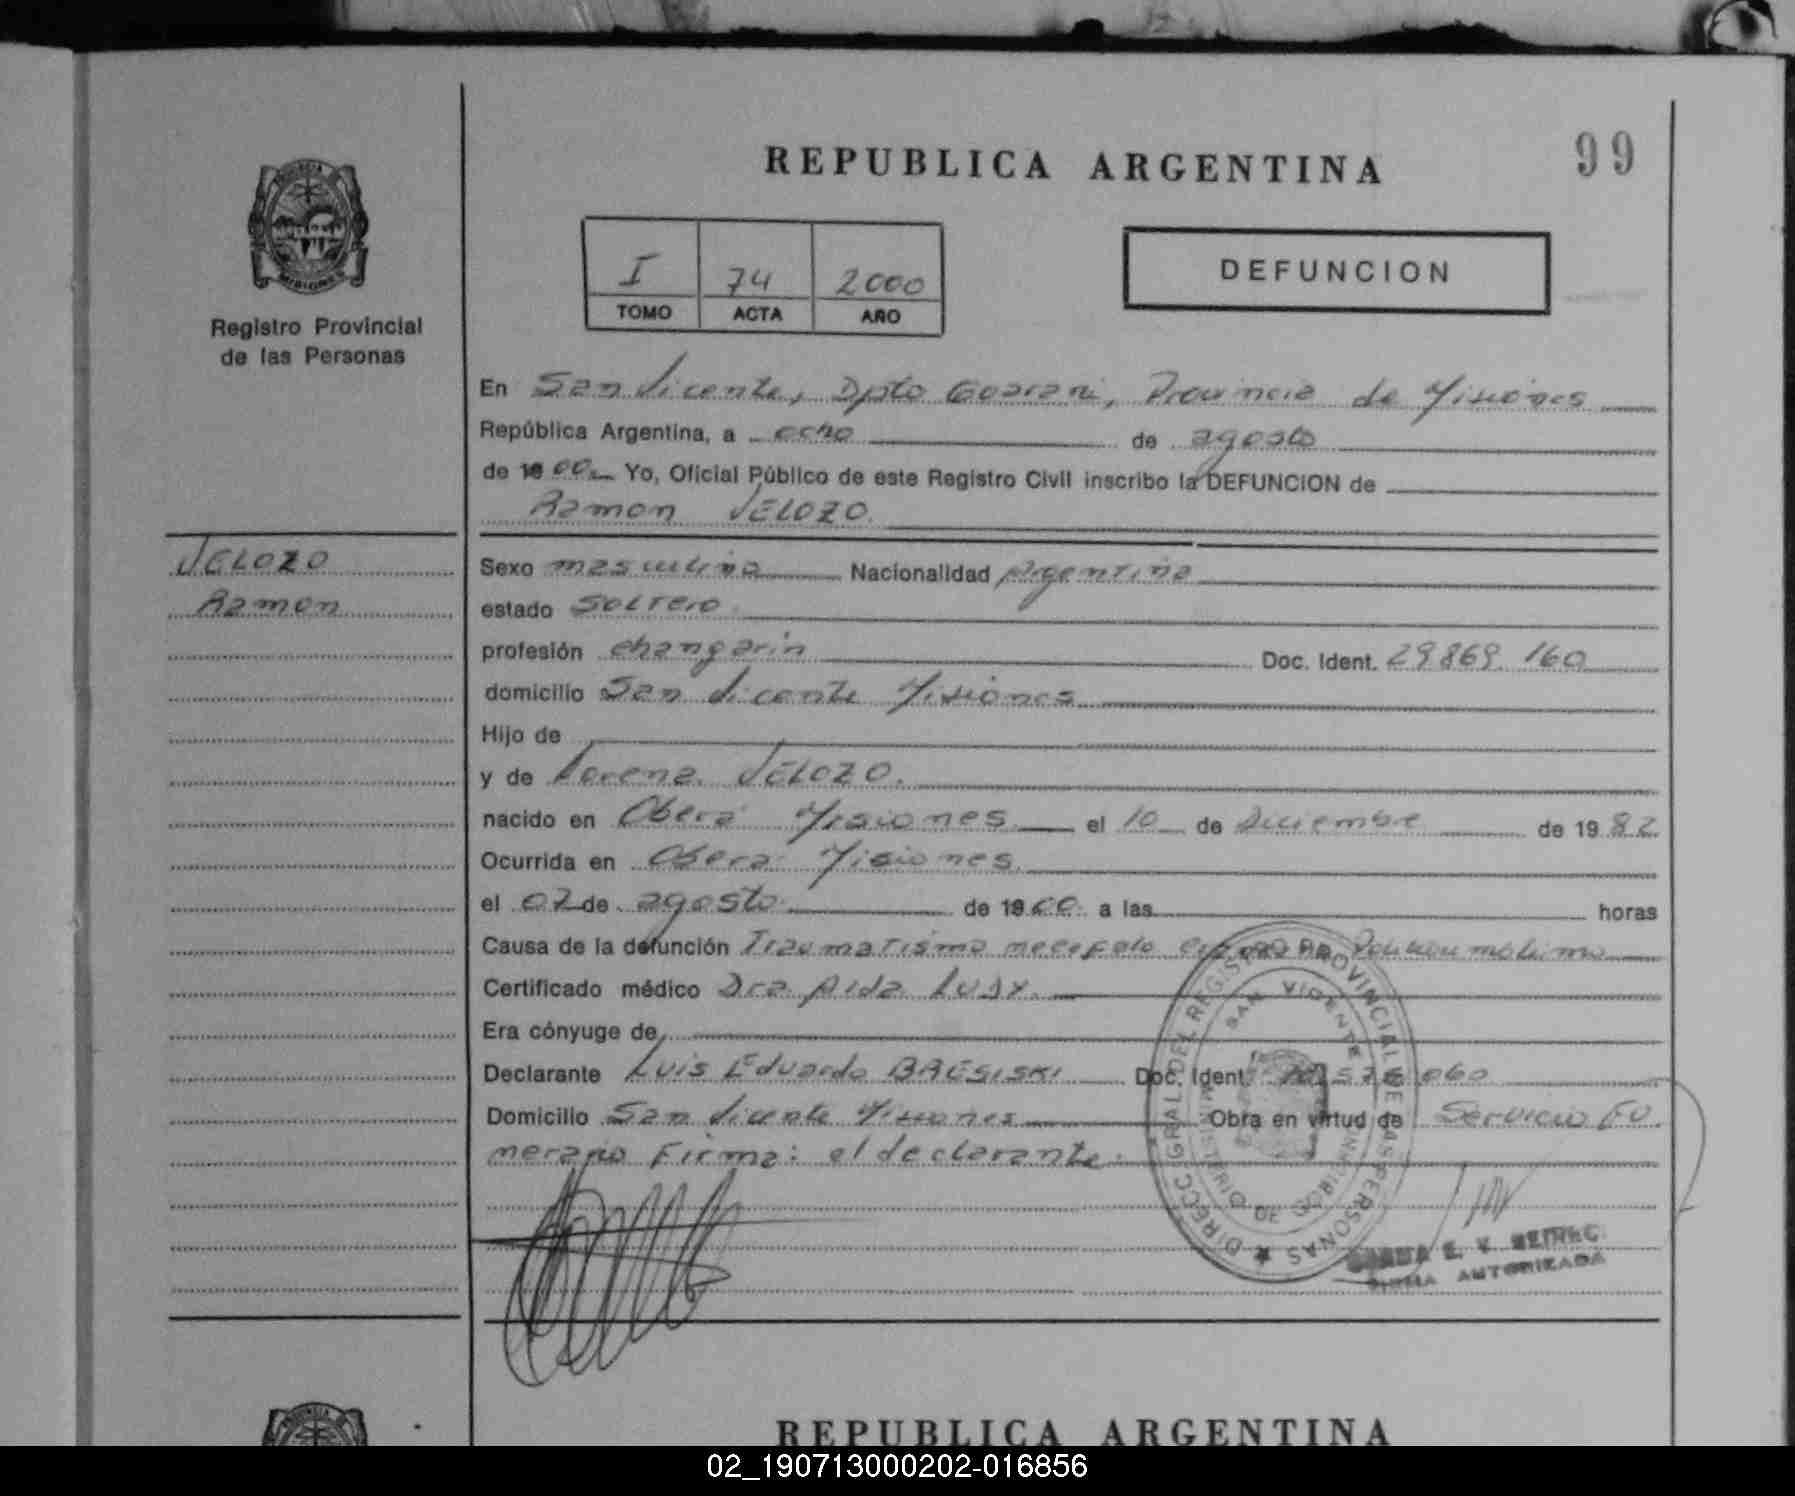 99
REPUBLICA ARGENTINA
PROVINCIA DE
MISIONES
Registro Provincial
de las Personas
I 74 2000
TOMO ACTA AÑO
DEFUNCION
En San Vicente, Dpto Guarani, Provincia de Misiones
República Argentina, a ocho de agosto
de 19 00 Yo, Oficial Público de este Registro Civil inscribo la DEFUNCION de
Ramon VELOZO.
VELOZO
Ramon
Sexo masculino Nacionalidad Argentina
estado Soltero.
profesión changarin Doc. Ident. 29869.160
domicilio San Vicente Misiones
Hijo de
y de Lorena VELOZO.
nacido en Oberá Misiones el 10 de Diciembre de 19 82
Ocurrida en Obera Misiones.
el 07 de agosto de 19 00 a las horas
Causa de la defunción Traumatismo
Certificado médico Dra Aida
Era cónyuge de
Declarante Luis Eduardo Doc. Ident. 060
Domicilio San Vicente Misiones Obra en virtud de Servicio Fu
nerario Firma: el declarante.
DIRECC. GRAL. DEL REGISTRO PROVINCIAL DE LAS PERSONAS
SAN VICENTE
MINISTERIO DE GOBIERNO
FIRMA AUTORIZADA
REPUBLICA ARGENTINA
02_190713000202-016856